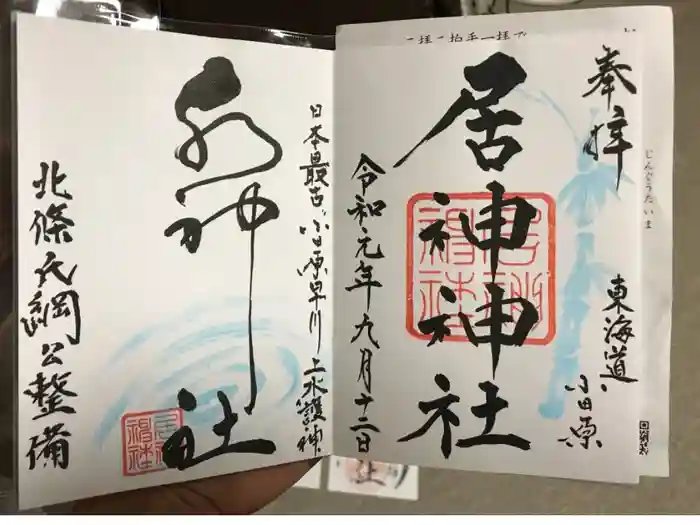 奉拝
東海道
小田原
居神神社
令和元年九月十三日
日本最古小田原早川上水護神
水神社
北條氏綱公整備
二拝二拍手一拝で
じんぐうたいま